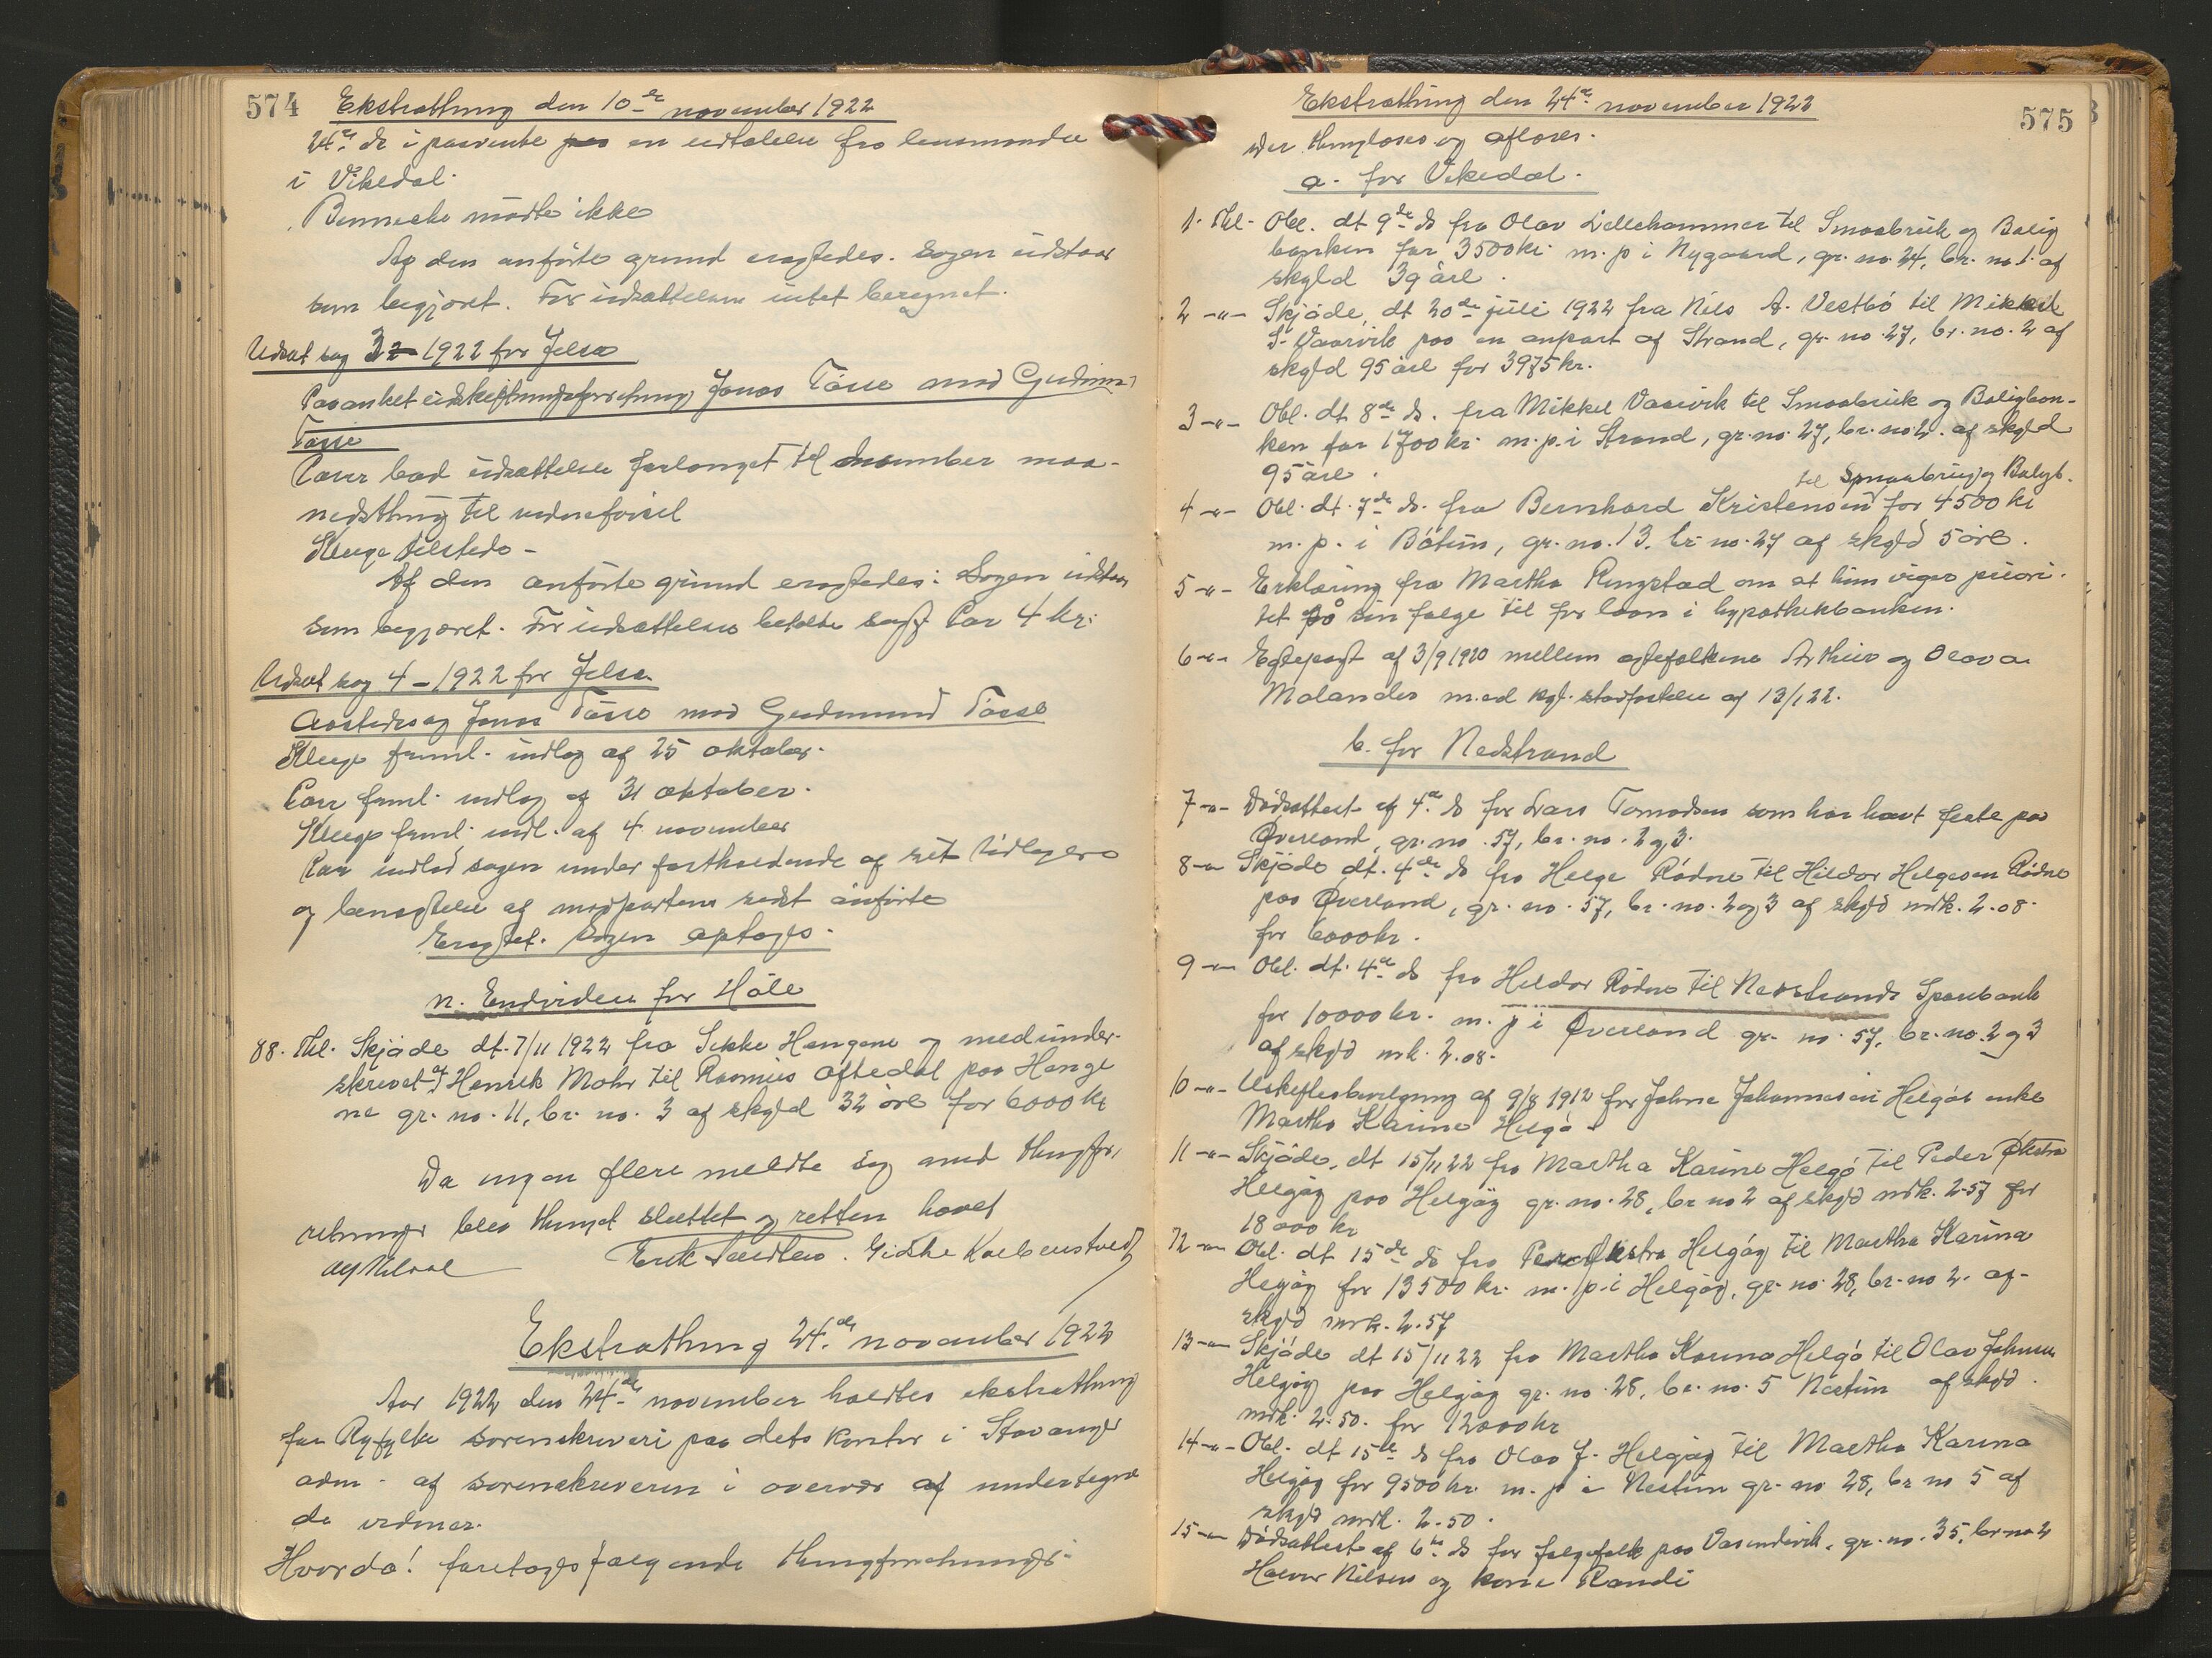 574 Ekstrathing den 10de november 1922
24de ds i paavente paa en udtalelse fra lensmanden
i Vikedal.
Bennecke mødte ikke
Af den anførte grund eragtedes. Sagen udstaar
som begjæret. For udsættelsen intet beregnet.
Udsat sag 3 - 1922 for Jelsa
Paaanket udskiftningsforretning Jonas Tøsse mod Gudmund
Tøsse
Carr bad udsættelse forlanget til december maa-
nedsthing til vidneførsel
Kluge tilstede -
Af den anførte grund eragtedes: Sagen udstaar
som begjæret. For udsættelsen betalte sagf Carr 4 kr.
Udsat sag 4 - 1922 for Jelsa
Aastedssag Jonas Tøsse mod Gudmund Tøsse
Kluge freml. indlæg af 25 oktober.
Carr freml. indlæg af 31 oktober.
Kluge freml. indl. af 4 november
Carr indlod sagen under fastholdende af sit tidligere
og benægtelse af modpartens sidst anførte
Eragtet. Sagen optages.
n. Endvidere for Høle
88. Thl. Skjøde dt. 7/11 1922 fra Sikke Hengene og medunder-
skrevet af Henrik Mohr til Rasmus Oftedal paa Henge
ne gr. no. 11, br. no. 3 af skyld 32 øre for 6000 kr
Da ingen flere meldte sig med thingfor-
retninger blev thinget sluttet og retten hævet
Erik Sædberg. Gidske Kolbenstvedt
Ekstrathing 24de november 1922
Aar 1922 den 24de november holdtes ekstrathing
for Ryfylke sorenskriveri paa dets kontor i Stavanger
adm. af sorenskriveren i overvær af undertegne
de vidner.
Hvorda! foretoges følgende thingforretninger.
Ekstrathing den 24de november 1922 575
Der thinglæses og aflæses.
a. for Vikedal.
1. Thl. Obl. dt 9de ds fra Olav Lillehammer til Smaabruk og Bolig
banken for 3500 kr. m. p i Nygaard, gr. no. 24, br. no 1. af
skyld 39 øre.
2 -"- Skjøde, dt 20de juli 1922 fra Nils A. Vestbø til Mikkel
S. Vaarvik paa en anpart af Strand, gr. no. 27, br. no. 2 af
skyld 95 øre for 3975 kr.
3 -"- Obl. dt 8de ds. fra Mikkel Vaarvik til Smaabruk og Boligban-
ken for 1700 kr. m. p. i Strand, gr. no. 27, br. no 2. af skyld
95 øre.
til Smaabrug og Boligb.
4 -"- Obl. dt. 7de ds. fra Bernhard Kristensen for 4500 kr
m. p. i Bøtun, gr. no. 13. br no. 27 af skyld 5 øre.
5 -"- Erklæring fra Martha Ringstad om at hun viger priori-
tet på sin følge til for laan i hypothekbanken.
6 -"- Egtepagt af 3/9 1920 mellem ægtefolkene Arthur og Olava
Molander med kgl. stadfæstelse af 13/1 22.
b. for Nedstrand
7 -"- Dødsattest af 4de ds for Lars Tormodsen som har havt feste paa
Øverland, gr. no. 57, br. no. 2 og 3.
8 -"- Skjøde dt. 4de ds fra Helge Rødne til Hildor Helgesen Rødne
paa Øverland, gr. no. 57, br. no. 2 og 3 af skyld mrk. 2.08.
for 6000 kr.
9 -"- Obl. dt. 4de ds fra Hildor Rødne til Nedstrands Sparebank
for 10000 kr. m. p i Øverland gr. no. 57, br. no. 2 og 3
af skyld mrk. 2.08.
10 -"- Uskiftesbevilgning af 9/8 1912 for Johne Johannesen Helgøs enke
Martha Karine Helgø.
11 -"- Skjøde, dt 15/11 22 fra Martha Karine Helgø til Peder Økstra
Helgøy paa Helgøy gr. no. 28, br no 2 af skyld mrk. 2.57 for
18000 kr
12 -"- Obl. dt 15de ds fra Peder Økstra Helgøy til Martha Karina
Helgøy for 13500 kr. m. p. i Helgøy, gr. no. 28, br. no 2. af
skyld mrk. 2.57
13 -"- Skjøde dt 15/11 22 fra Martha Karina Helgø til Olav Johnsen
Helgøy paa Helgøy gr. no. 28, br. no. 5 Nestun af skyld
mrk. 2.50. for 12000 kr
14 -"- Obl. dt 15de ds fra Olav J. Helgøy til Martha Karina
Helgøy for 9500 kr. m. p i Nestun gr. no 28, br no 5 af
skyld mrk. 2.50.
15 -"- Dødsattest af 6te ds for følgefolk paa Vasendvik, gr. no. 35, br no 2
Halvor Nilsen og kone Randi